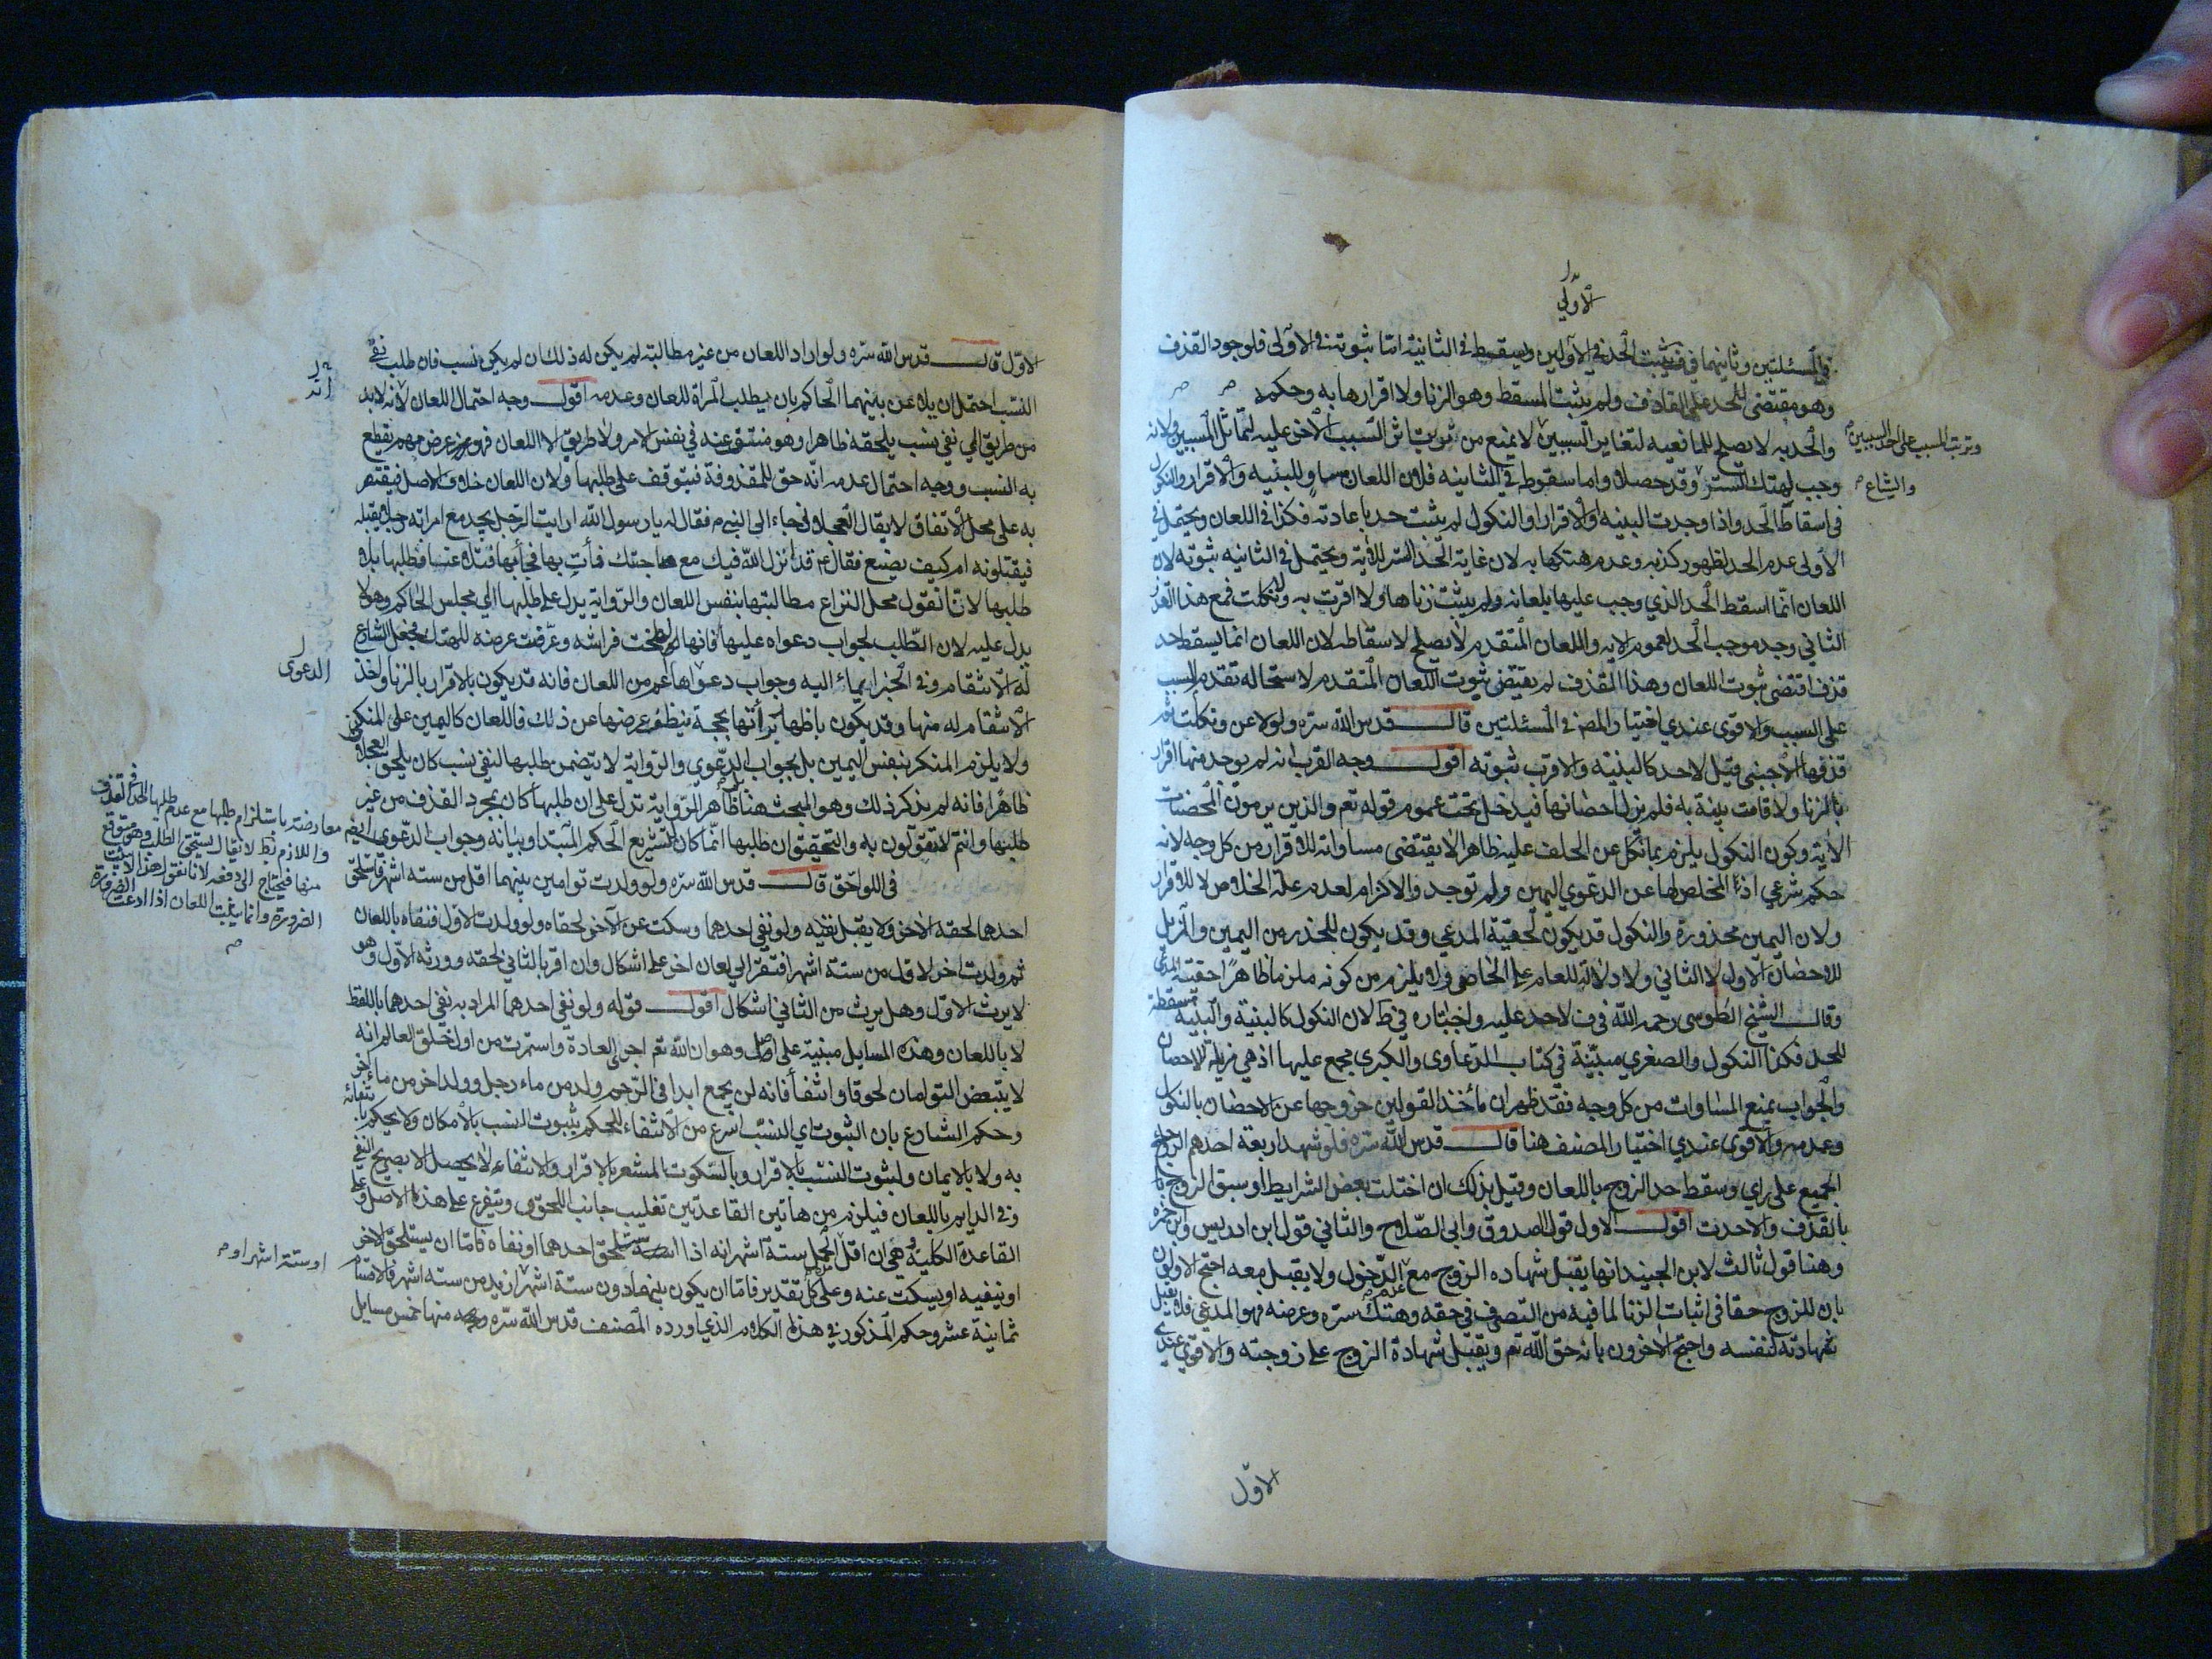 الاولى
في المسئلتين وثانيهما في فيثبت الحد في الاولين ويسقط في الثانية اما ثبوته في الاولى فلوجود القذف
وهو مقتضى للحد على القاذف ولم يثبت المسقط وهو الزنا ولا اقرارها به وحكم
والحد به لا يصلح للمانعيه لتغاير السببين لا يمنع من ثبوت اثر السبب الاخر عليه لتماثل المسببين ولانه
وترتب المسبب على احد السببين
وجب لهتك الستر وقد حصل واما سقوطه في الثانيه فلان اللعان مساو للبينه والاقرار والنكول
والشياع
في اسقاط الحد واذا وجدت البينه او الاقرار او النكول لم يثبت حد باعادته فكذا في اللعان ويحتمل في
الاولى عدم الحد لظهور كذبه وعدم هتكها به لان غاية الحد الستر للاية ويحتمل في الثانيه ثبوته لان
اللعان انما اسقط الحد الذي وجب عليها بلعانه ولم يثبت زناها ولا اقرت به ولا نكلت فمع هذا القذف
الثاني وجد موجب الحد لعموم الايه واللعان المتقدم لا يصلح لاسقاطه لان اللعان انما يسقط حد
قذف اقتضى ثبوت اللعان وهذا القذف لم يقتض ثبوت اللعان المتقدم لاستحاله تقدم المسبب
على السبب والاقوى عندي اختيار المص في المسئلتين قال قدس الله سره ولو لاعن ونكلت ثم
قذفها الاجنبي قيل لا حد كالبينه والاقرب ثبوته اقول وجه القرب انه لم يوجد منها اقرار
بالزنا ولا قامت بينة به فلم يزل احصانها فيدخل تحت عموم قوله تع والذين يرمون المحصنات
الاية وكون النكول يلزم بما نكل عن الحلف عليه ظاهرا لا يقتضى مساواته للاقرار من كل وجه لانه
حكم شرعي اذ المخلص لها عن الدعوي اليمين ولم توجد والالزام لعدم علة الخلاص لا للاقرار
ولان اليمين محذورة والنكول قد يكون لحقية المدعي وقد يكون للحذر من اليمين والمزيل
للاحصان الاول لا الثاني ولا دلالة للعام على الخاص ولا يلزم من كونه ملزما ظاهرا احقية المدعي
وقال الشيخ الطوسي رحمه الله في ف لا حد عليه واختاره في ط لان النكول كالبينة والبينة مسقطة
للحد فكذا النكول والصغري مبينة في كتاب الدعاوى والكبرى مجمع عليها اذ هي مزيلة للاحصان
والجواب بمنع المساوات من كل وجه فقد ظهر ان مأخذ القولين خروجها عن الاحصان بالنكول
وعدمه والاقوى عندي اختيار المصنف هنا قال قدس الله سره فلو شهد اربعة احدهم الزوج حد
الجميع على راي وسقط حد الزوج باللعان وقيل بذلك ان اختلت بعض الشرايط او سبق الزوج
بالقذف والا حدت اقول الاول قول الصدوق وابي الصلاح والثاني قول ابن ادريس وابن حمزه
وهنا قول ثالث لابن الجنيد انها يقبل شهاده الزوج مع عدم الدخول ولا يقبل معه احتج الاولون
بان للزوج حقا في اثبات الزنا لما فيه من التصرف في حقه وهتك ستره وعرضه فهو المدعي فلا يقبل
شهادته لنفسه واحتج الاخرون بانه حق الله تع ويقبل شهادة الزوج على زوجته والاقوى عندي
الاول
الاول قال قدس الله سره ولو اراد اللعان من غير مطالبته لم يكن له ذلك ان لم يكن نسب فان طلب نفي
النسب احتمل ان يلاعن بينهما الحاكم بان يطلب المراة للعان وعدمه اقول وجه احتمال اللعان لانه لابد
من طريق الي نفي نسب يلحقه ظاهرا وهو منتفى عنه في نفس الامر ولا طريق الا اللعان فهو غرض مهم يقطع
به النسب ووجه احتمال عدمه انه حق للمقذوفة فيتوقف على طلبها ولان اللعان خلاف الاصل فيقتصر
به على محل الاتفاق لا يقال العجلاني جاء الى النبي م فقال له يا رسول الله ارايت الرجل يجد مع امراته رجلا يقتله
فيقتلونه ام كيف يصنع فقال ع قد انزل الله فيك مع صاحبتك فأت بها فجاء بها فتلاعنا فطلبها بلا
طلبها لانا نقول محل النزاع مطالبتها بنفس اللعان والرواية يدل على طلبها الي مجلس الحاكم وهو لا
يدل عليه لان الطلب لجواب دعواه عليها فانها لو لطخت فراشه وعرفت عرضه للهتك فجعل الشارع
له الانتقام وفي الخبر ايماء اليه وجواب دعواها اعم من اللعان فانه قد يكون بالاقرار بالزنا واخذ
الدعوى
الانتقام له منها وقد يكون باظهار برأتها بحجة ينظف عرضها عن ذلك فاللعان كاليمين على المنكر
ولا يلزم المنكر بنفس اليمين بل بجواب الدعوي والرواية لا يتضمن طلبها لنفي نسب كان يلحق العجلاني
ظاهرا فانه لم يذكر ذلك وهو المبحث هنا ظاهر الرواية تدل على ان طلبها كان بمجرد القذف من غير
طلبها وانتم لا تقولون به والتحقيق ان طلبها انما كان لتشريع الحكم المبتدا وبيانه وجواب الدعوى
معارضته باستلزام طلبها مع عدم طلبها الحد في القذف
واللازم بط لا يقال يستحق الطلب وهو متوقع
منها فيحتاج الى دفعه لانا نقول هذا لا يثبت
الضرورة وانما يثبت اللعان اذا ادعت الضرورة
في اللواحق قال قدس الله سره ولو ولدت توامين بينهما اقل من سته اشهر فاستلحق
احدهما لحقه الاخر ولا يقبل نفيه ولو نفي احدهما وسكت عن الآخر لحقاه ولو ولدت الاول فنفاه باللعان
ثم ولدت اخر لاقل من ستة اشهر افتقر الي لعان اخر على اشكال وان اقر بالثاني لحقه وورثه الاول وهو
لا يرث الاول وهل يرث من الثاني اشكال اقول قوله ولو نفي احدهما المراد به نفي احدهما باللفظ
لا باللعان وهذه المسايل مبنية على اصل وهو ان الله تع اجرى العادة واستمرت من اول خلق العالم انه
لا يتبعض التوامان لحوقا وانتفأ فانه لن يجمع ابدا في الرحم ولد من ماء رجل وولد اخر من ماء اخر
وحكم الشارع بان الثبوت اي النسب اسرع من الانتفاء للحكم بثبوت النسب بالامكان ولا يحكم بانتفائه
به ولا بالايمان ولثبوت النسب بالاقرار وبالسكوت المشعر بالاقرار والانتفاء لا يحصل الا بصريح النفي
وفي الدايم باللعان فيلزم من هاتين القاعدتين تغليب جانب اللحوق ويتفرع على هذا الاصل وعلى
القاعدة الكلية وهي ان اقل الحمل ستة اشهر انه اذا استلحق احدهما او نفاه فاما ان يستلحق الاخر
او ستة اشهر او
او ينفيه او يسكت عنه وعلى كل تقدير فاما ان يكون بينهما دون ستة اشهر ازيد من سته اشهر فالاقسام
ثمانية عشر وحكم المذكور في هذا الكلام الذي اورده المصنف قدس الله سره منها خمس مسايل